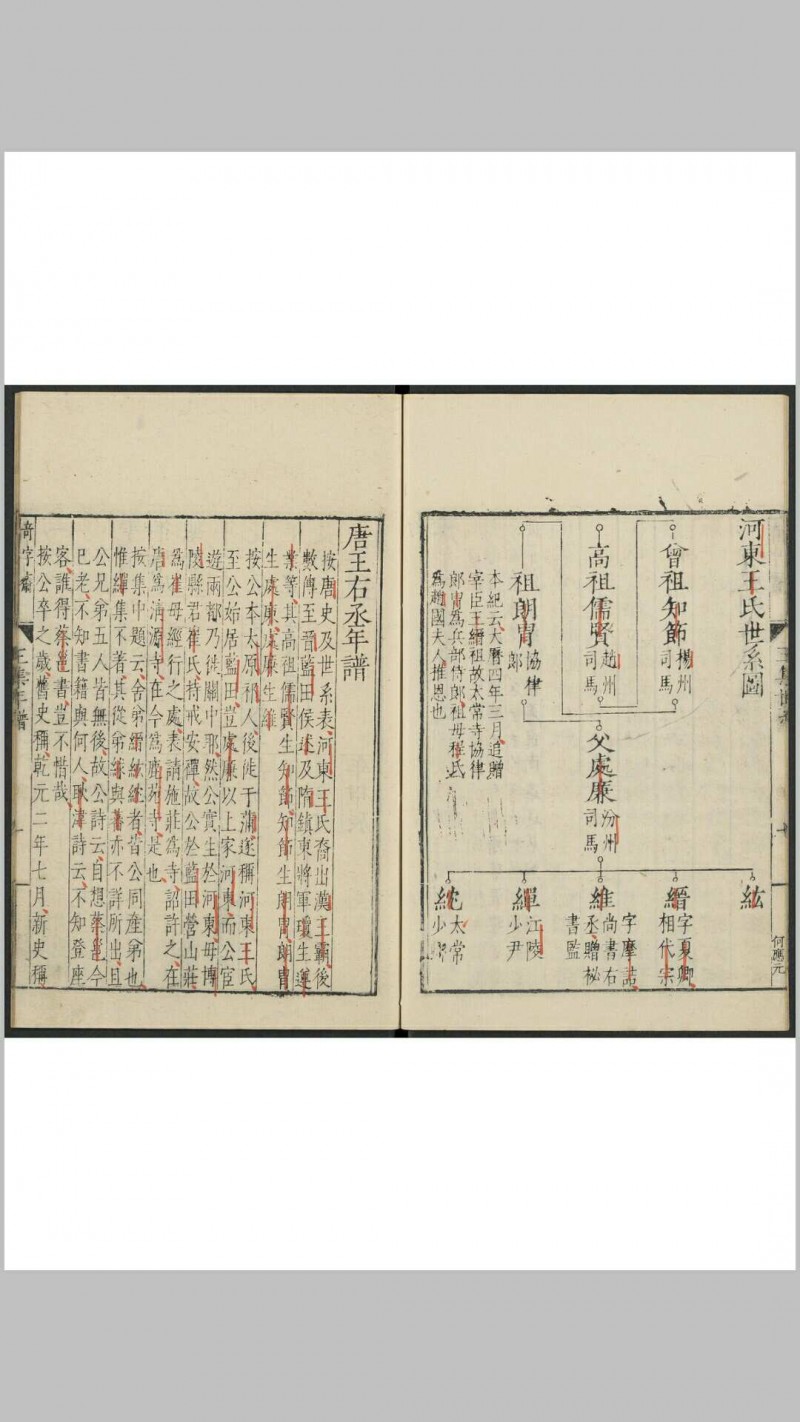 河東王氏世系圖
曾祖知節 揚州司馬
高祖儒賢 趙州司馬
祖朗胄 協律郎
本紀云大曆四年三月追贈
宰臣王縉祖故太常寺協律
郎胄爲兵部侍郎祖母程氏
爲趙國夫人推恩也
父處廉 汾州司馬
紘
縉 字夏卿相代宗
維 字摩詰尚書右丞贈祕書監
繟 江陵少尹
紞 太常少卿
何應元
唐王右丞年譜
按唐史及世系表河東王氏裔出漢王霸後
數傳至晉藍田侯述及隋鎮東將軍瓊生遵
業等其高祖儒賢生知節知節生朗胄朗胄
生處廉處廉生維
按公本太原祁人後徙于蒲遂稱河東王氏
至公始居藍田豈處廉以上家河東而公宦
遊兩都乃徙關中耶然公實生於河東毋博
陵縣君崔氏持戒安禪故公於藍田營山莊
爲崔母經行之處表請施莊爲寺詔許之在
唐爲清源寺在今爲鹿苑寺是也
按集中題云舍弟縉絃紞者皆公同產弟也
惟繟集不著其從弟絿與蕃亦不詳所出且
公兄弟五人皆無後故公詩云自想蔡邕今
已老不知書籍與何人耿湋詩云不知登座
客誰得蔡邕書豈不惜哉
按公卒之歲舊史稱乾元二年七月新史稱
奇字齋
王集年譜